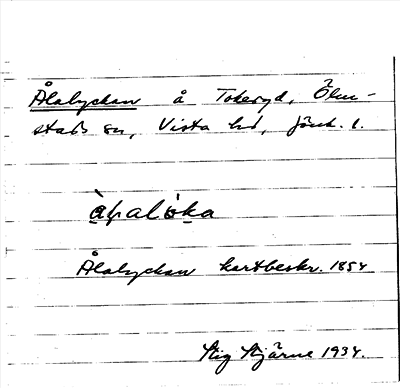 Ålalyckan å Tokeryd, Ölm-
stads sn, Vista hd, Jönk. l.
Ålalyckan kartbeskr. 1854
Stig Stjärne 1934.